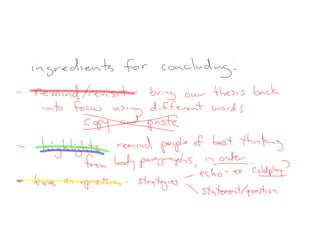 ingredients for concluding -
- remind/revisit bring our thesis back
into focus using different words
copy and paste
- highlights remind people of best thinking
from body paragraphs, in order
- leave an impression: strategies - echo - ex Coldplay?
\ statement/question